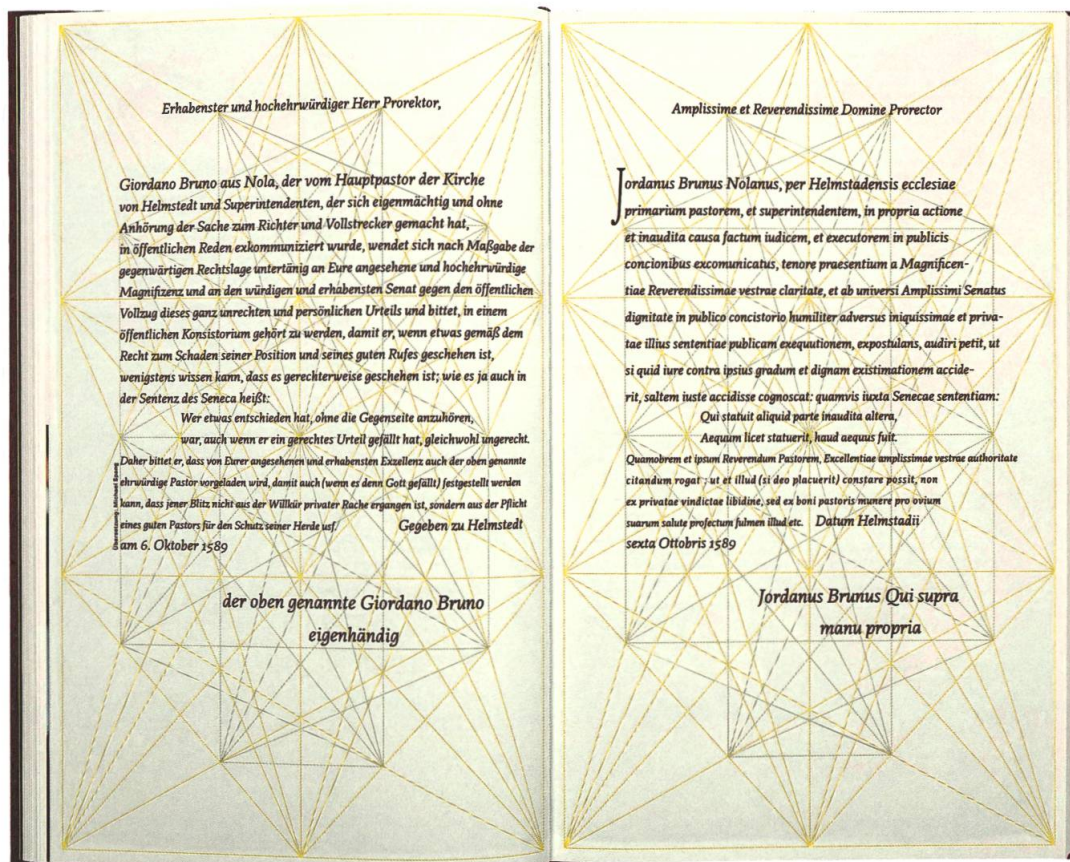 Erhabenster und hochehrwürdiger Herr Prorektor,
Giordano Bruno aus Nola, der vom Hauptpastor der Kirche
von Helmstedt und Superintendenten, der sich eigenmächtig und ohne
Anhörung der Sache zum Richter und Vollstrecker gemacht hat,
in öffentlichen Reden exkommuniziert wurde, wendet sich nach Maßgabe der
gegenwärtigen Rechtslage untertänig an Eure angesehene und hochehrwürdige
Magnifizenz und an den würdigen und erhabensten Senat gegen den öffentlichen
Vollzug dieses ganz unrechten und persönlichen Urteils und bittet, in einem
öffentlichen Konsistorium gehört zu werden, damit er, wenn etwas gemäß dem
Recht zum Schaden seiner Position und seines guten Rufes geschehen ist,
wenigstens wissen kann, dass es gerechterweise geschehen ist; wie es ja auch in
der Sentenz des Seneca heißt:
Wer etwas entschieden hat, ohne die Gegenseite anzuhören,
war, auch wenn er ein gerechtes Urteil gefällt hat, gleichwohl ungerecht.
Daher bittet er, dass von Eurer angesehenen und erhabensten Exzellenz auch der oben genannte
ehrwürdige Pastor vorgeladen wird, damit auch (wenn es denn Gott gefällt) festgestellt werden
kann, dass jener Blitz nicht aus der Willkür privater Rache ergangen ist, sondern aus der Pflicht
eines guten Pastors für den Schutz seiner Herde usf. Gegeben zu Helmstedt
am 6. Oktober 1589
der oben genannte Giordano Bruno
eigenhändig
Übersetzung: Michael Spang
Amplissime et Reverendissime Domine Prorector
Jordanus Brunus Nolanus, per Helmstadensis ecclesiae
primarium pastorem, et superintendentem, in propria actione
et inaudita causa factum iudicem, et executorem in publicis
concionibus excomunicatus, tenore praesentium a Magnificen-
tiae Reverendissimae vestrae claritate, et ab universi Amplissimi Senatus
dignitate in publico concistorio humiliter adversus iniquissimae et priva-
tae illius sententiae publicam exequutionem, expostulans, audiri petit, ut
si quid iure contra ipsius gradum et dignam existimationem accide-
rit, saltem iuste accidisse cognoscat: quamvis iuxta Senecae sententiam:
Qui statuit aliquid parte inaudita altera,
Aequum licet statuerit, haud aequus fuit.
Quamobrem et ipsum Reverendum Pastorem, Excellentiae amplissimae vestrae authoritate
citandum rogat ; ut et illud (si deo placuerit) constare possit, non
ex privatae vindictae libidine, sed ex boni pastoris munere pro ovium
suarum salute profectum fulmen illud etc. Datum Helmstadii
sexta Ottobris 1589
Jordanus Brunus Qui supra
manu propria